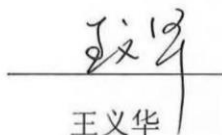 王义华
王义华